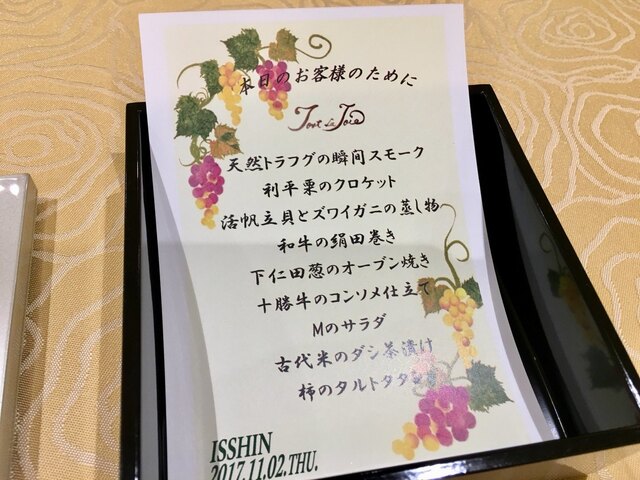 本日のお客様のために
Tout La Joie
天然トラフグの瞬間スモーク
利平栗のクロケット
活帆立貝とズワイガニの蒸し物
和牛の絹田巻き
下仁田葱のオーブン焼き
十勝牛のコンソメ仕立て
Mのサラダ
古代米のダシ茶漬け
柿のタルトタタン
ISSHIN
2017.11.02.THU.